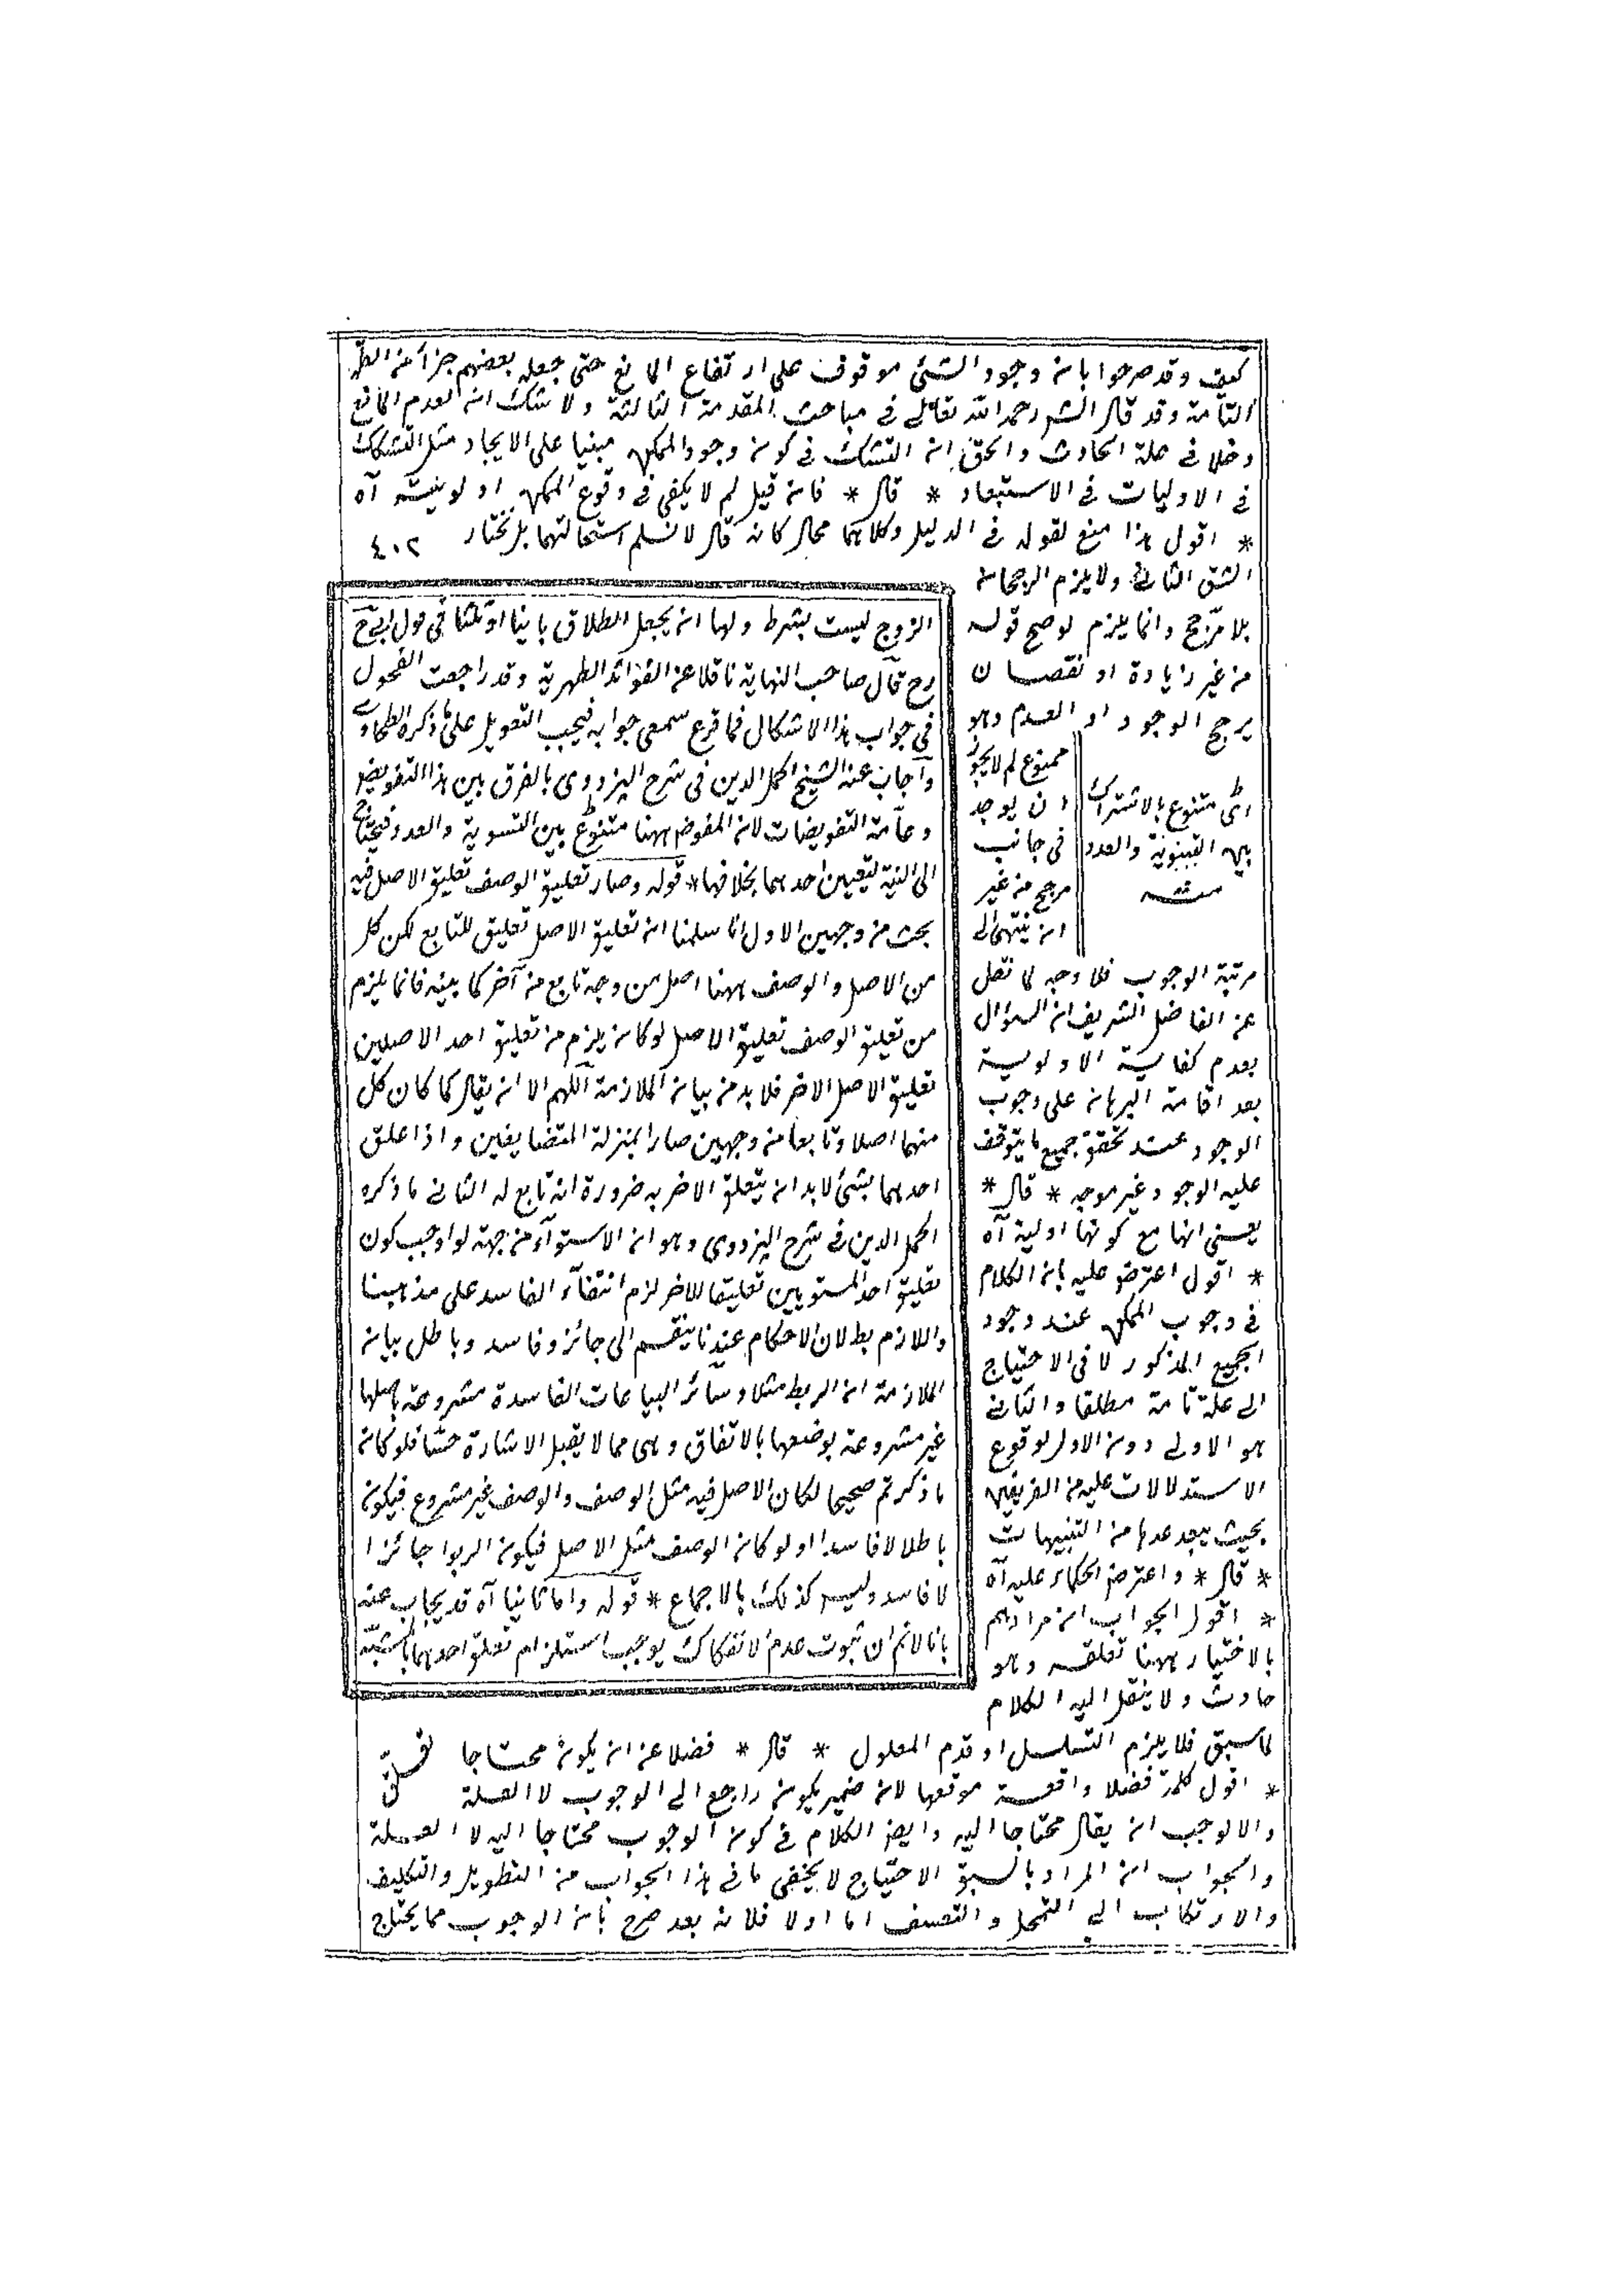 كيف وقد صرحوا بان وجود الشئ موقوف على ارتفاع المانع حتى جعله بعضهم جزأ من العلة
التامة وقد قال الشم رحمه الله تعالى فى مباحث المقدمة الثالثة ولا شك ان لعدم المانع
دخلا فى علة الحادث والحق ان التشكك فى كون وجود الممكن مبنيا على الايجاد مثل التشكك
فى الاوليات فى الاستبعاد * قال * فان قيل لم لا يكفى فى وقوع الممكن اولويته آه
* اقول هذا منع لقوله فى الدليل وكلاهما محال كانه قال لا نسلم استحالتهما بل نختار
٤٠٢
الشق الثانى ولا يلزم الرجحان
بلا مرجح وانما يلزم لو صح قوله
من غير زيادة او نقصان
يرجح الوجود او العدم وهو
ممنوع لم لا يجوز
ان يوجد
فى جانب
مرجح من غير
ان ينتهى الى
مرتبة الوجوب فلا وجه لما نقل
عن الفاضل الشريف ان السؤال
بعدم كفاية الاولوية
بعد اقامة البرهان على وجوب
الوجود عند تحقق جميع ما يتوقف
عليه الوجود غير موجه * قال *
يعنى انها مع كونها اولية آه
* اقول اعترض عليه بان الكلام
فى وجوب الممكن عند وجود
الجميع المذكور لا فى الاحتياج
الى علة تامة مطلقا والثانى
هو الاولى دون الاول لوقوع
الاستدلالات عليه من الفريقين
بحيث يبعد عدها من التنبيهات
* قال * واعترض الحكماء عليه آه
* اقول الجواب ان مرادهم
بالاختيار ههنا تعلقه وهو
حادث ولا ينقل اليه الكلام
لما سبق فلا يلزم التسلسل او قدم المعلول * قال * فضلا عن ان يكون محتاجا
* اقول كلمة فضلا واقعة موقعها لان ضمير يكون راجع الى الوجوب لا العلة
والا لوجب ان يقال محتاجا اليه وايض الكلام فى كون الوجوب محتاجا اليه لا العلة
والجواب ان المراد بالسبق الاحتياج لا يخفى ما فى هذا الجواب من التطويل والتكليف
والارتكاب الى التمحل والتعسف اما اولا فلانه بعد صرح بان الوجوب مما يحتاج
اى متنوع بالاشتراك
بين البينونة والعدد
منه
الزوج ليست بشرط ولها ان يجعل الطلاق باينا او ثلثا فى قول ابى ح
رح قال صاحب النهاية ناقلا عن الفوائد الظهرية وقد راجعت الفحول
فى جواب هذا الاشكال فما قرع سمعى جوابه فيجب التعويل على ما ذكره الطحاوى
واجاب عنه الشيخ اكمل الدين فى شرح البزدوى بالفرق بين هذا التفويض
وعامة التفويضات لان المفوض ههنا متنوع بين التسوية والعدد فيحتاج
الى النية لتعيين احدهما بخلافها * قوله وصار تعليق الوصف تعليق الاصل فيه
بحث من وجهين الاول انا سلمنا ان تعليق الاصل تعليق للتابع لكن كل
من الاصل والوصف ههنا اصل من وجه تابع من آخر كما بينه فانما يلزم
من تعليق الوصف تعليق الاصل لو كان يلزم من تعليق احد الاصلين
تعليق الاصل الاخر فلا بد من بيان الملازمة اللهم الا ان يقال كما كان كل
منهما اصلا وتابعا من وجهين صارا بمنزلة المتضايفين واذا علق
احدهما بشئ لا بد ان يتعلق الاخر به ضرورة انه تابع له الثانى ما ذكره
اكمل الدين فى شرح البزدوى وهو ان الاستوآء من جهة لو اوجب كون
تعليق احد المستويين تعليقا للاخر لزم انتفآء الفاسد على مذهبنا
واللازم بط لان الاحكام عندنا ينقسم الى جائز وفاسد وباطل بيان
الملازمة ان الربط مثلا وسائر البياعات الفاسدة مشروعة باصلها
غير مشروعة بوضعها بالاتفاق وهى مما لا يقبل الاشارة حسا فلو كان
ما ذكرتم صحيحا لكان الاصل فيه مثل الوصف والوصف غير مشروع فيكون
باطلا لا فاسدا او لو كان الوصف مثل الاصل فيكون الربوا جائزا
لا فاسد وليس كذلك بالاجماع * قوله واما ثانيا آه قد يجاب عنه
بانا لانم ان ثبوت عدم الانفكاك يوجب استلزام تعلق احدهما بالمشية
تعلق